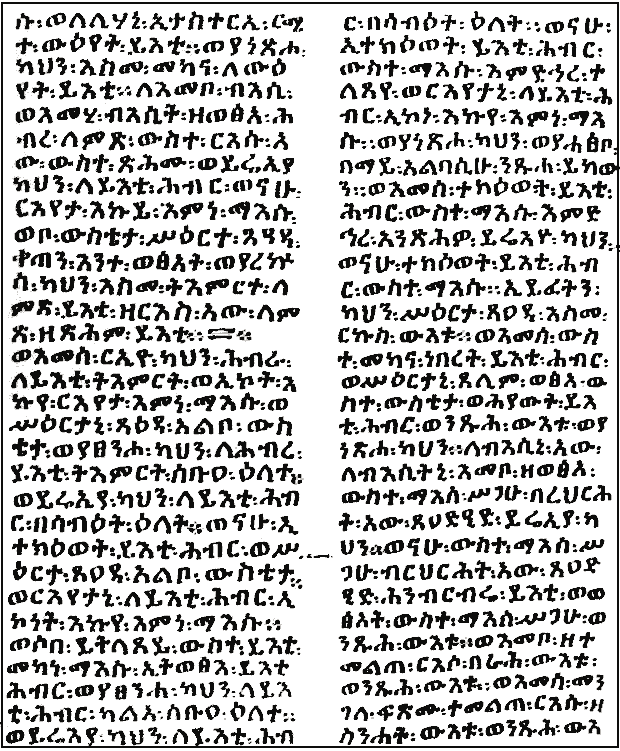 ሱ፡ወለሊሃኒ፡ኢታስተርኢ፡ርኩ
ተ፡ውዕየት፡ይእቲ።ወያነጽሖ
ካህን፡እስመ፡መካና፡ለውዕ
የት፡ይእቲ።ለእመቦ፡ብእሲ፡
ወእመሂ፡ብእሲት፡ዘወፅአ፡ሕ
ብረ፡ለምጽ፡ውስተ፡ርእሱ፡አ
ው፡ውስተ፡ጽሕሙ፡ወይሬእያ
ካህን፡ለይእቲ፡ሕብር፡ወናሁ፡
ርእየታ፡እኩይ፡እምነ፡ማእሱ፡
ወቦ፡ውስቴታ፡ሥዕርተ፡ጸዓዳ፡
ቀጠን፡እንተ፡ወፅአት፡ወያረኵ
ሳ፡ካህን፡እስመ፡ትእምርተ፡ለ
ምጽ፡ይእቲ፡ዘርእስ፡አው፡ለም
ጽ፡ዘጽሕም፡ይእቲ።
ወእመሰ፡ርኢዮ፡ካህን፡ሕብራ፡
ለይእቲ፡ትእምርት፡ወኢኮት፡እ
ኩየ፡ርእየታ፡እምነ፡ማእሱ፡ወ
ሥዕርታኒ፡ጸዕዳ፡አልቦ፡ውስ
ቴታ፡ወያፀንሖ፡ካህን፡ለሕብረ፡
ይእቲ፡ትእምርት፡ሰቡዐ፡ዕለተ።
ወይሬእያ፡ካህን፡ለይእቲ፡ሕብ
ር፡በሳብዕት፡ዕለት።ወናሁ፡ኢ
ተክዕወት፡ይእቲ፡ሕብር፡ወሥ
ዕርታ፡ጸዐዳ፡አልቦ፡ውስቴታ፡
ወርእየታኒ፡ለይእቲ፡ሕብር፡ኢ
ኮነት፡እኩየ፡እምነ፡ማእሱ።
ወሶበ፡ይትላጸይ፡ውስተ፡ይእቲ፡
መካን፡ማእሱ፡ኢትወፅእ፡ይእቲ
ሕብር፡ወያፀንሖ፡ካህን፡ለይእ
ቲ፡ሕብር፡ካልአ፡ሰቡዐ፡ዕለተ።
ወይሬእያ፡ካህን፡ለይእቲ፡ሕብ
ር፡በሳብዕት፡ዕለት።ወናሁ፡
ኢተክዕወት፡ይእቲ፡ሕብር፡
ውስተ፡ማእሱ፡እምድኅረ፡ተ
ላጸየ፡ወርእየታኒ፡ለይእቲ፡ሕ
ብር፡ኢኮነ፡እኩየ፡እምነ፡ማእ
ሱ።ወያነጽሖ፡ካህን፡ወየሐፅቦ፡
በማይ፡አልባሲሁ፡ንጹሐ፡ይከው
ን።ወእመሰ፡ተክዕወት፡ይእቲ፡
ሕብር፡ውስተ፡ማእሱ፡እምድ
ኅረ፡አንጽሖ፡ይሬእዮ፡ካህን።
ወናሁ፡ተክዕወት፡ይእቲ፡ሕብ
ር፡ውስተ፡ማእሱ።ኢይፈትን፡
ካህን፡ሥዕርተ፡ጸዐዳ፡እስመ፡
ርኩስ፡ውእቱ።ወእመሰ፡ውስ
ተ፡መካና፡ነበረት፡ይእቲ፡ሕብር፡
ወሥዕርታኒ፡ጸሊም፡ወፅአ፡ው
ስተ፡ውስቴታ፡ወሕየወት፡ይእ
ቲ፡ሕብር፡ወንጹሕ፡ውእቱ፡ወያ
ነጽሖ፡ካህን።ለብእሲኒ፡አው፡
ለብእሲትኒ፡እመቦ፡ዘወፅአ፡
ውስተ፡ማእሰ፡ሥጋሁ፡በረህርሕ
ት፡አው፡ጸዐድዒድ፡ይሬኢያ፡ካ
ህን።ወናሁ፡ውስተ፡ማእሰ፡ሥ
ጋሁ፡ብርህርሕት፡አው፡ጸዐድ
ዒድ፡ሕንብርብሬ፡ይእቲ፡ወወ
ፅአት፡ውስተ፡ማእሰ፡ሥጋሁ፡ወ
ንጹሕ፡ውእቱ።ወእመቦ፡ዘተ
መልጠ፡ርእሶ፡በራሕ፡ውእቱ፡
ወንጹሕ፡ውእቱ።ወእመሰ፡መን
ገለ፡ፍጽሙ፡ተመልጠ፡ርእሱ፡ዘ
ስንሐት፡ውእቱ፡ወንጹሕ፡ውእ